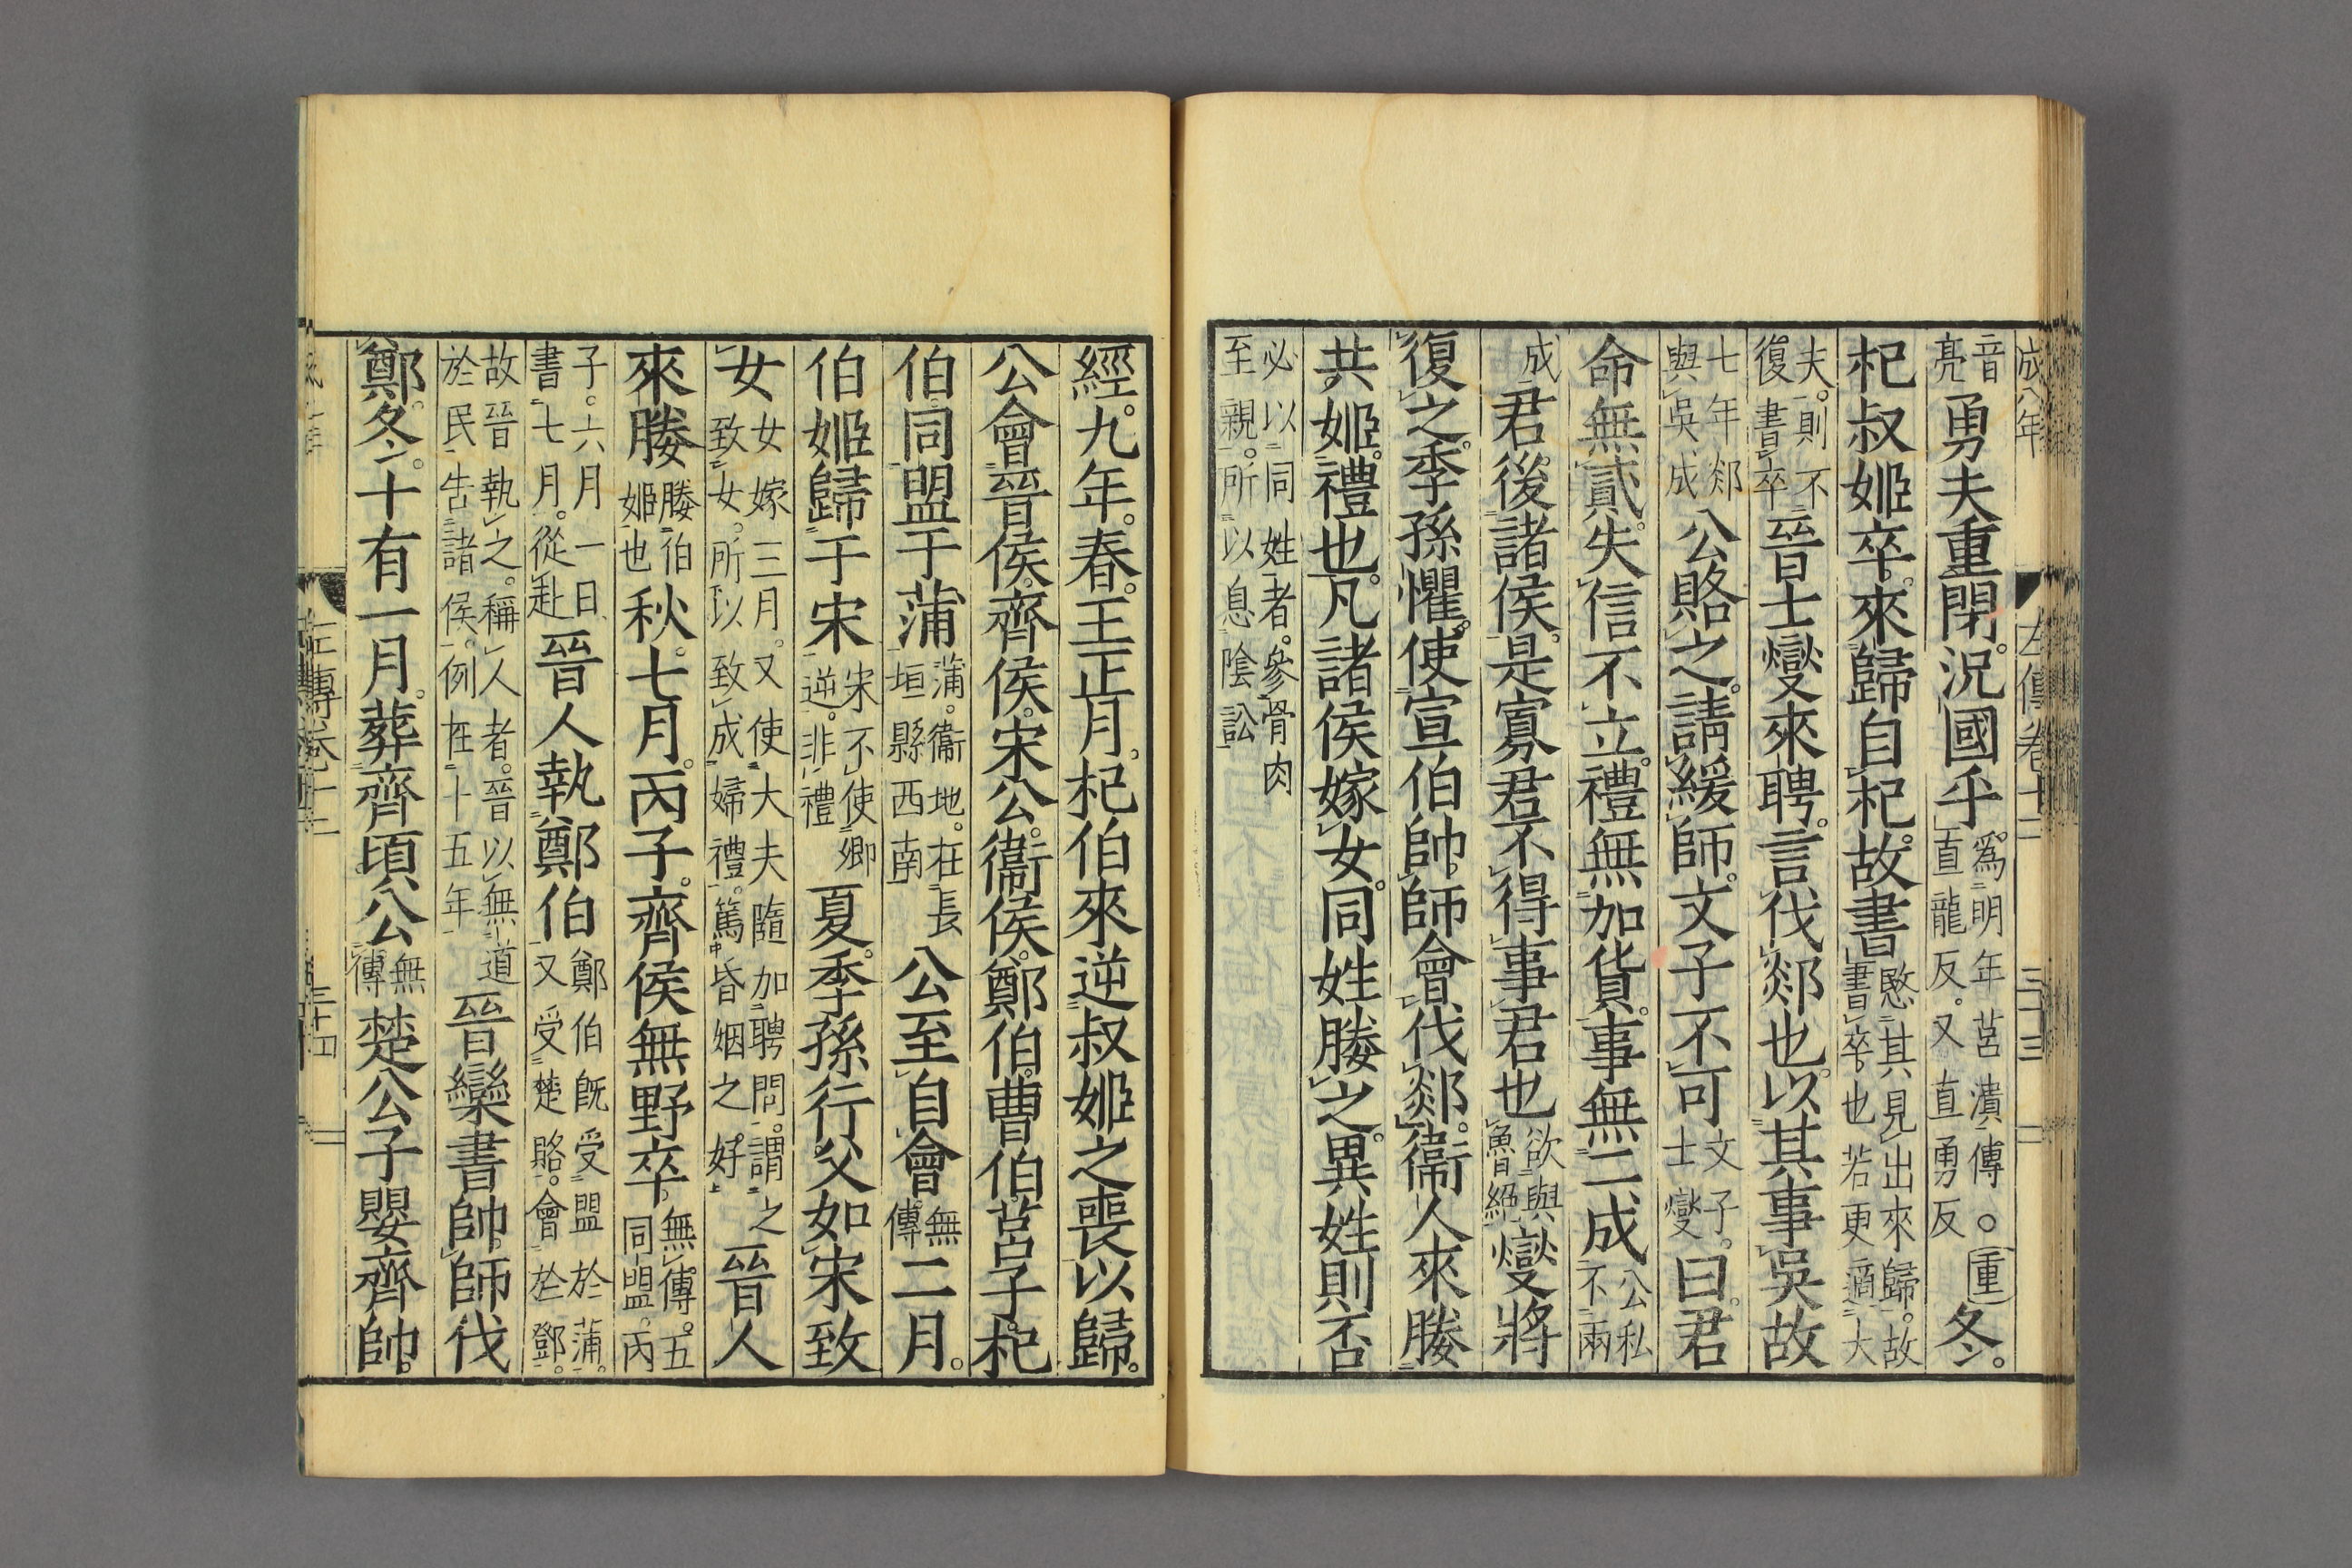 成八年 左傳卷十二 三十三
音亮勇夫重閉。況國乎爲明年莒潰傳。○重直龍反。又直勇反冬。
杞叔姬卒。來歸自杞。故書愍其見出來歸。故書卒也若更適大
夫。則不復書卒晉士燮來聘。言伐郯也。以其事吳故
七年郯與吳成公賂之。請緩師。文子不可文子。士燮曰。君
命無貳。失信不立。禮無加貨。事無二成公私不兩
成君後諸侯。是寡君不得事君也欲與魯絕燮將
復之。季孫懼。使宣伯帥師會伐郯。衞人來媵
共姬。禮也。凡諸侯嫁女。同姓媵之。異姓則否
必以同姓者。參骨肉至親。所以息陰訟
經。九年。春。王正月。杞伯來逆叔姬之喪以歸。
公會晉侯。齊侯。宋公。衞侯。鄭伯。曹伯。莒子。杞
伯。同盟于蒲蒲。衞地。在長垣縣西南公至自會無傳二月。
伯姬歸于宋宋不使卿逆。非禮夏。季孫行父如宋致
女女嫁三月。又使大夫隨加聘問。謂之致女。所以致成婦禮。篤昏姻之好晉人
來媵媵伯姬也秋。七月。丙子。齊侯無野卒無傳。五同盟。丙
子。六月一日書七月。從赴晉人執鄭伯鄭伯既受盟於蒲。又受楚賂。會於鄧。
故晉執之。稱人者。晉以無道於民告諸侯。例在十五年晉欒書帥師伐
鄭。冬。十有一月。葬齊頃公無傳楚公子嬰齊帥。
左傳卷十二 三十四